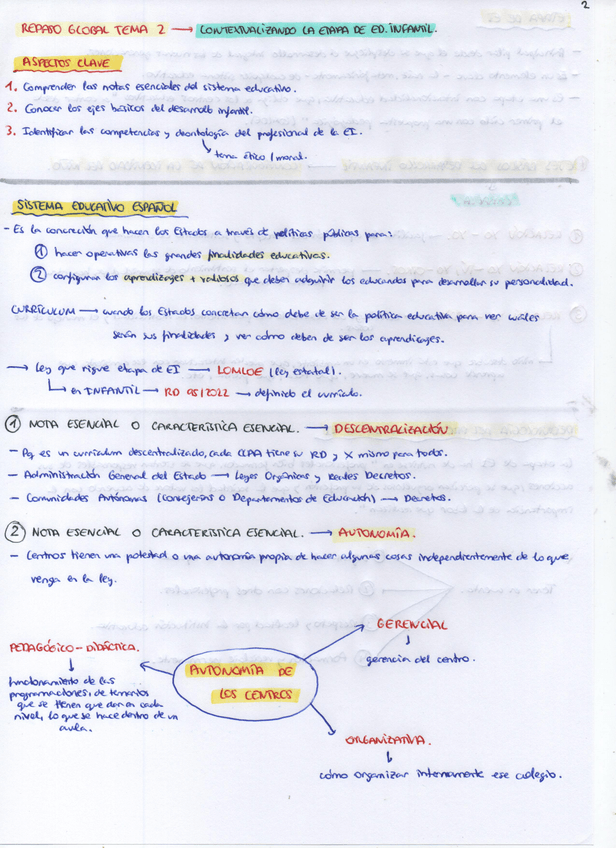 2
REPASO GLOBAL TEMA 2 → CONTEXTUALIZANDO LA ETAPA DE ED. INFANTIL.
ASPECTOS CLAVE
1. Comprender las notas esenciales del sistema educativo.
2. Conocer los ejes básicos del desarrollo infantil.
3. Identificar las competencias y deontología del profesional de la EI.
tema ético / moral.
SISTEMA EDUCATIVO ESPAÑOL
- Es la concreción que hacen los Estados a través de políticas públicas para:
① hacer operativas las grandes finalidades educativas.
② configurar los aprendizajes + valiosos que deben adquirir los educandos para desarrollar su personalidad.
CURRÍCULUM → cuando los Estados concretan cómo debe de ser la política educativa para ver cuáles
serán sus finalidades y ver cómo deben de ser los aprendizajes.
→ Ley que rigue etapa de EI → LOMLOE (ley estatal).
→ en INFANTIL → RD 95/2022 → definido el currículo.
① NOTA ESENCIAL O CARACTERÍSTICA ESENCIAL. → DESCENTRALIZACIÓN
- Aq es un currículum descentralizado, cada CCAA tiene su RD y X mismo para todos.
- Administración General del Estado → Leyes Orgánicas y Reales Decretos.
- Comunidades Autónomas (Consejerías o Departamentos de Educación) → Decretos.
② NOTA ESENCIAL O CARACTERÍSTICA ESENCIAL. → AUTONOMÍA.
- Centros tienen una potestad o una autonomía propia de hacer algunas cosas independientemente de lo que
venga en la ley.
GERENCIAL
gerencia del centro.
PEDAGÓGICO - DIDÁCTICA.
funcionamiento de las
programaciones, de temarios
que se tienen que dar en cada
nivel, lo que se hace dentro de un
aula.
AUTONOMÍA DE
LOS CENTROS
ORGANIZATIVA.
cómo organizar internamente ese colegio.